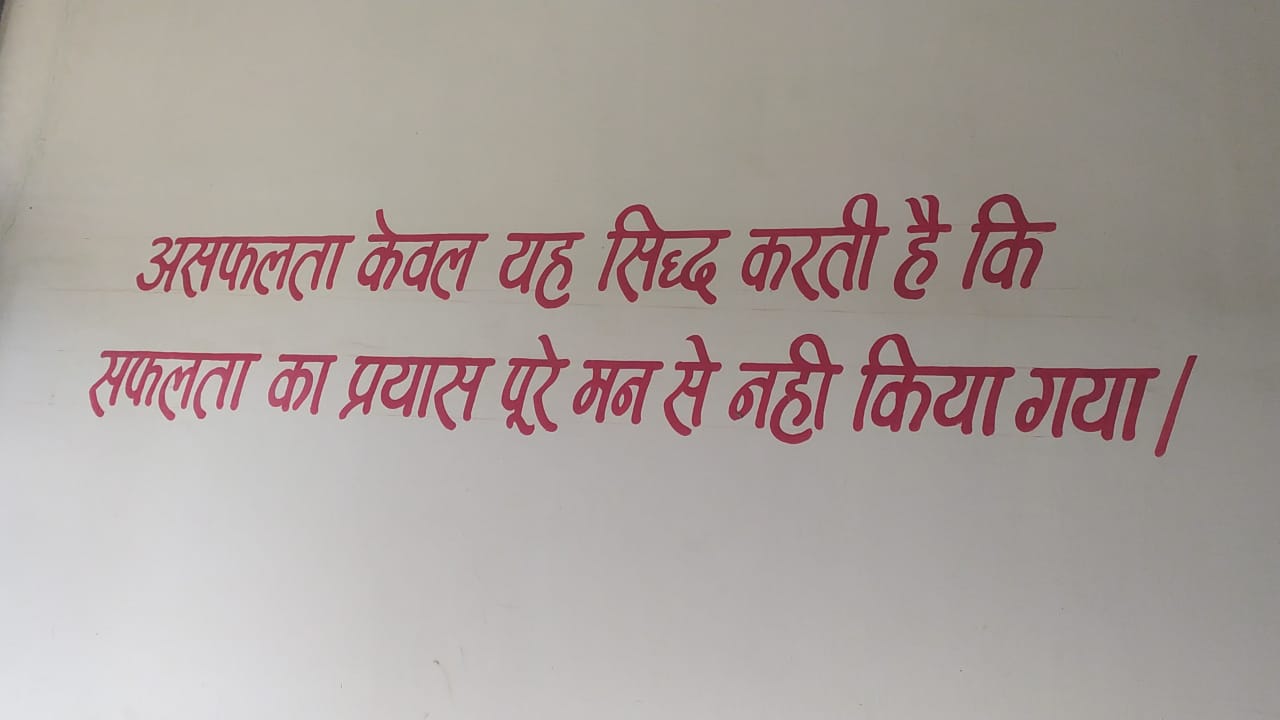 असफलता केवल यह सिध्द करती है कि
सफलता का प्रयास पूरे मन से नही किया गया।